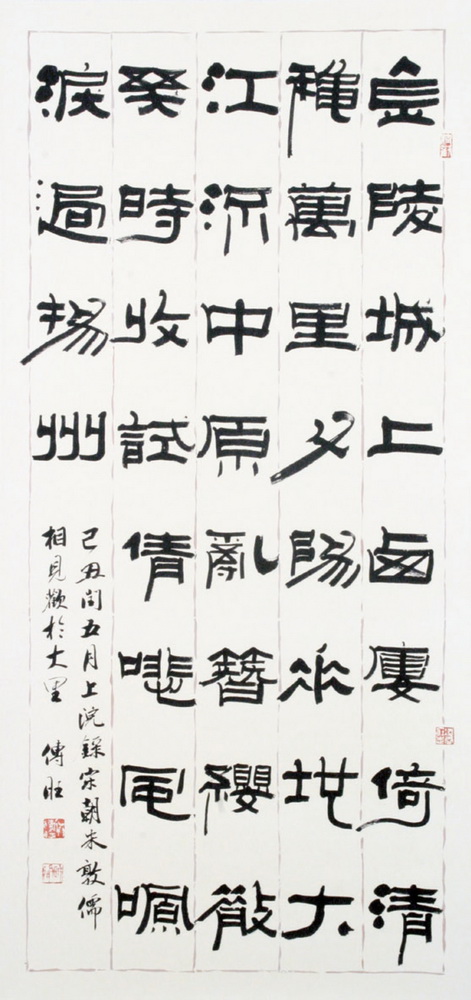 金陵城上西樓倚清
穐萬里夕陽垂地大
江流中原亂簪纓散
幾時收試倩悲風吹
淚過揚州
己丑閏五月上浣錄宋朝朱敦儒
相見歡於大里 傳旺